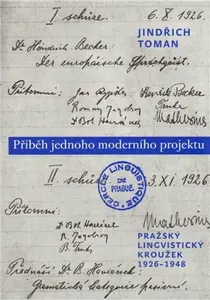 I schůze. 6. X. 1926.
JINDŘICH
TOMAN
Dr. Henrik Becker
Der europäische Sprachgeist.
Přítomni:
Henrik Becker
Trnka
Mathesius
Dr Boh Havránek
Příběh jednoho moderního projektu
II. schůze. 3. XI. 1926
CERCLE LINGUISTIQUE
DE
PRAGUE
Přítomni:
Mathesius
Dr B. Havránek
R. Jakobson
B. Trnka
PRAŽSKÝ
LINGVISTICKÝ
KROUŽEK
1926–1948
Přednáší Dr. B. Havránek:
Gramatická kategorie